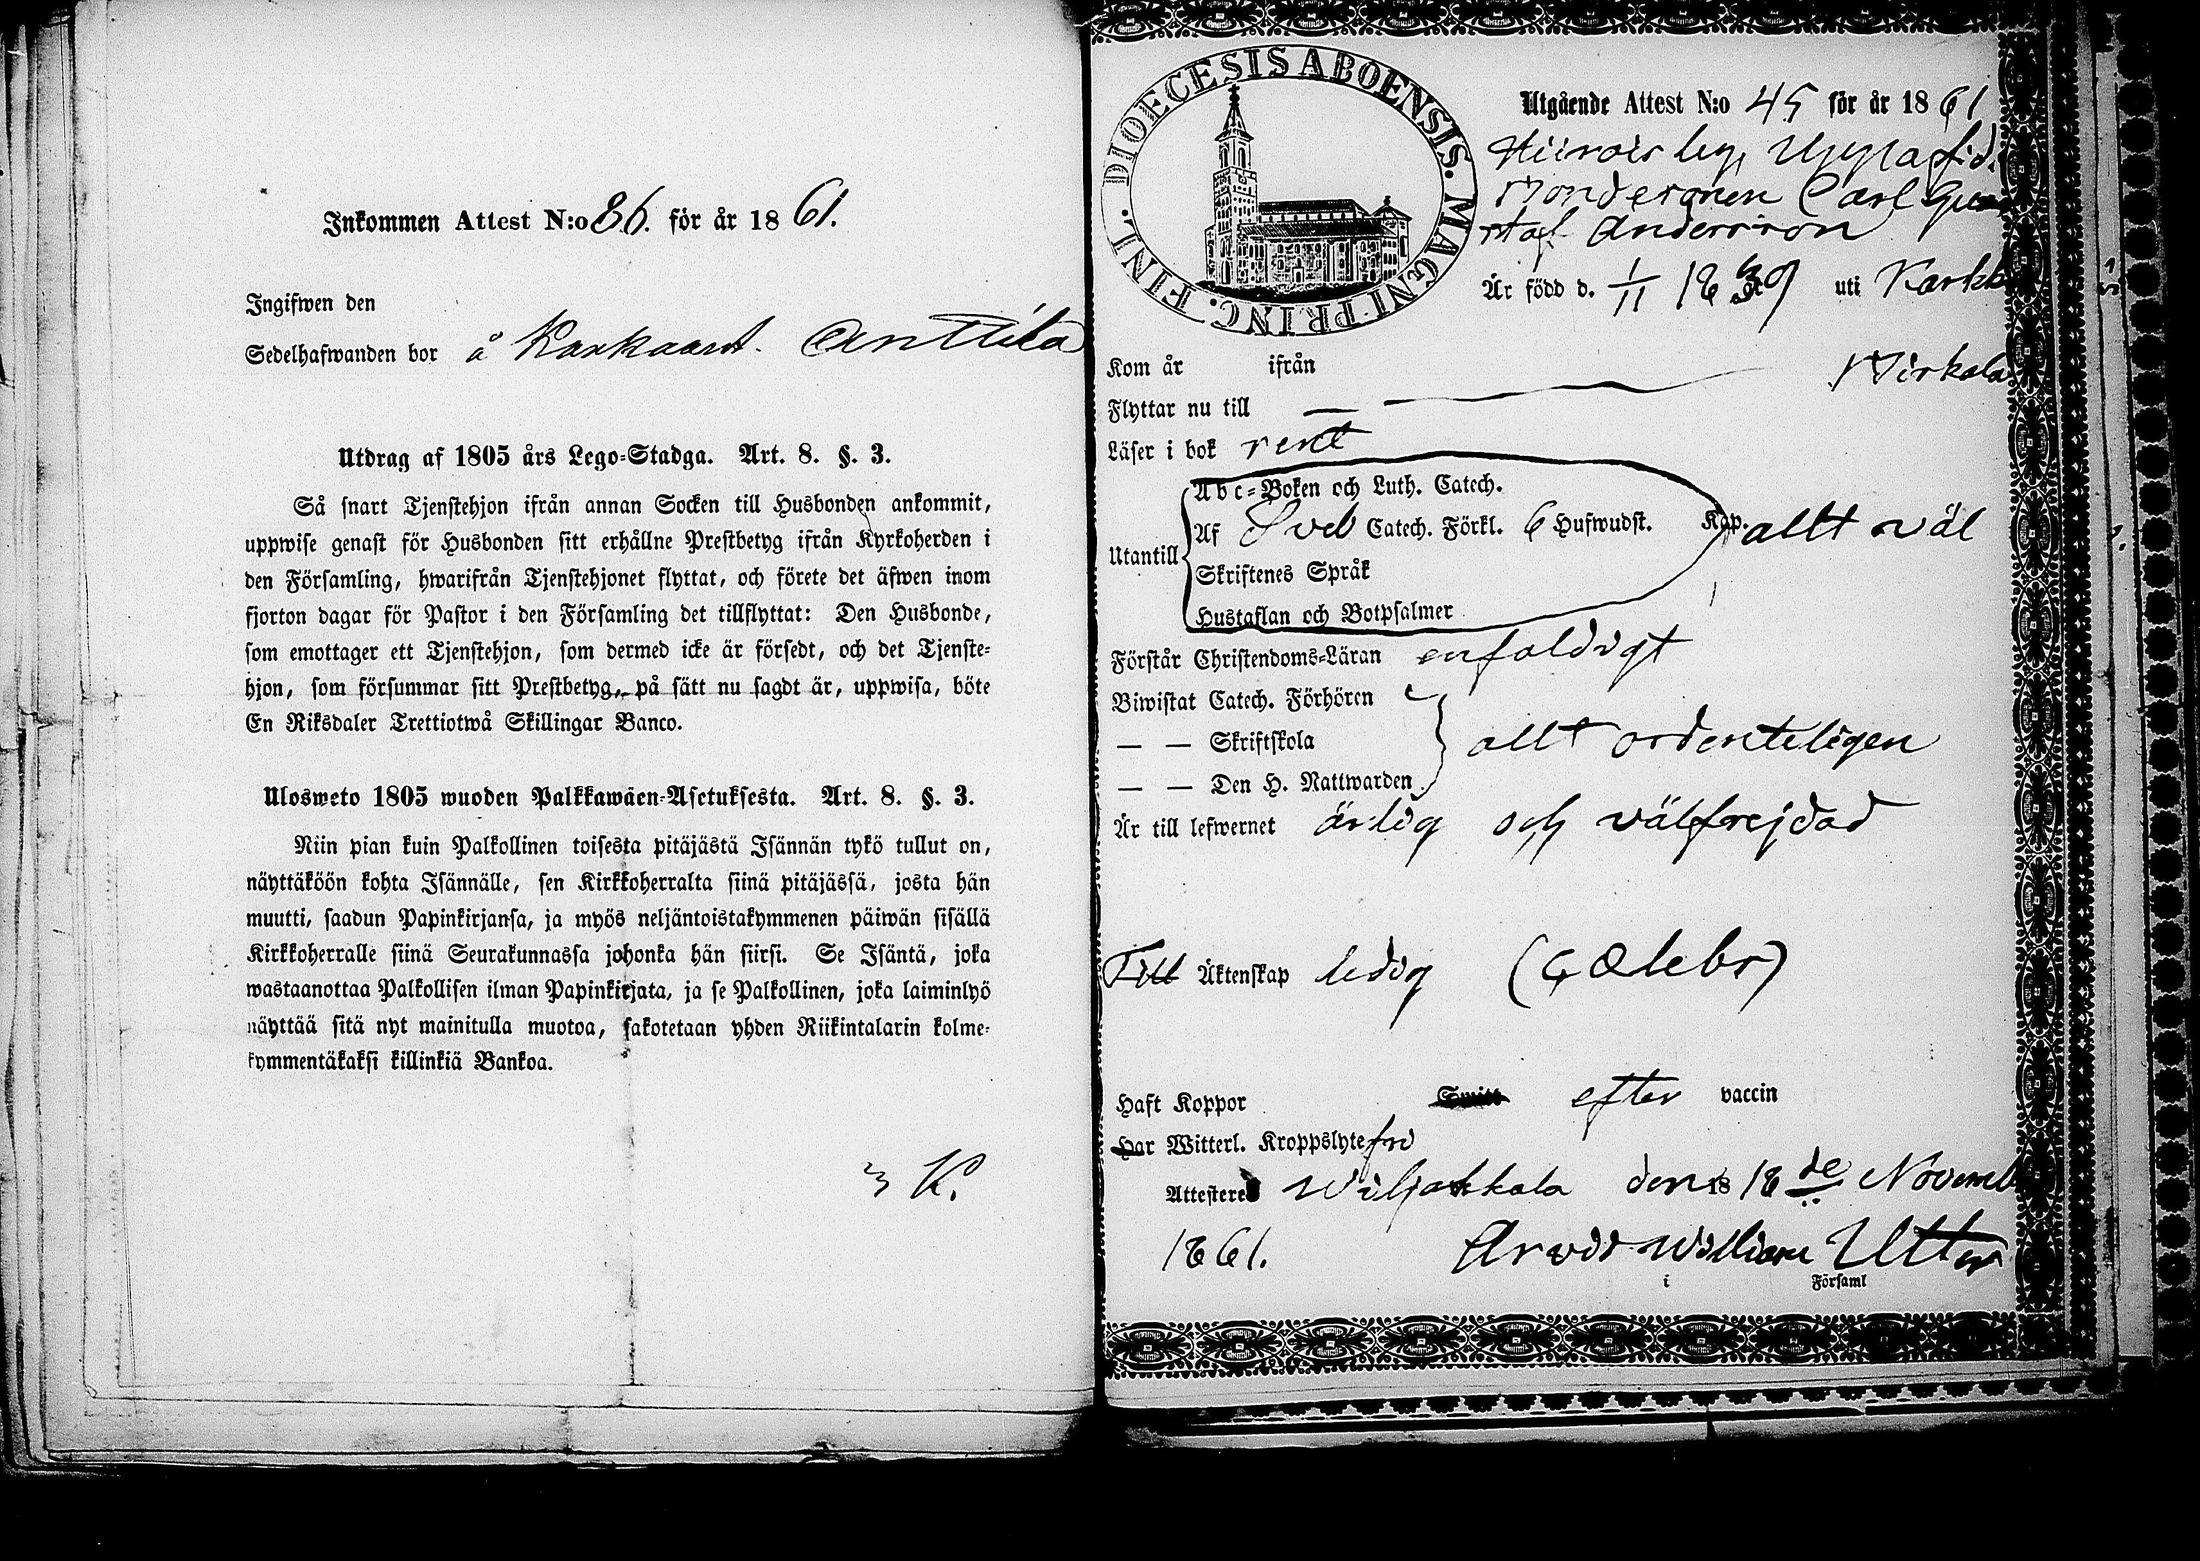 Inkommen Attest N:o 86. för år 1861.
Ingifwen den
Sedelhafwanden bor å Karkaart. Anttila
Utdrag af 1805 års Lego-Stadga. Art. 8. §. 3.
Så snart Tjenstehjon ifrån annan Socken till Husbonden ankommit,
uppwise genast för Husbonden sitt erhållne Prestbetyg ifrån Kyrkoherden i
den Församling, hwarifrån Tjenstehjonet flyttat, och förete det äfwen inom
fjorton dagar för Pastor i den Församling det tillflyttat: Den Husbonde,
som emottager ett Tjenstehjon, som dermed icke är försedt, och det Tjenste-
hjon, som försummar sitt Prestbetyg, på sätt nu sagdt är, uppwisa, böte
En Riksdaler Trettiotwå Skillingar Banco.
Ulosweto 1805 wuoden Palkkawäen-Asetuksesta. Art. 8. §. 3.
Niin pian kuin Palkollinen toisesta pitäjästä Isännän tykö tullut on,
näyttäköön kohta Isännälle, sen Kirkkoherralta siinä pitäjässä, josta hän
muutti, saadun Papinkirjansa, ja myös neljäntoistakymmenen päiwän sisällä
Kirkkoherralle siinä Seurakunnassa johonka hän siirsi. Se Isäntä, joka
wastaanottaa Palkollisen ilman Papinkirjata, ja se Palkollinen, joka laiminlyö
näyttää sitä nyt mainitulla muotoa, sakotetaan yhden Riikintalarin kolme-
kymmentäkaksi killinkiä Bankoa.
K.
DIOECESIS ABOENSIS. MAGNI PRINC. FINL.
Utgående Attest N:o 45 för år 1861
by,
Bondesonen Carl Gus
staf Andersson
Är född d. 1/11 1839 uti Karkk
Kom år ifrån
Flyttar nu till — Birkala
Läser i bok rent
Abc-Boken och Luth. Catech.
Utantill Af Sveb Catech. Förkl. 6 Hufwudst. Kap. allt väl
Skriftenes Språk
Hustaflan och Botpsalmer
Förstår Christendoms-Läran enfaldigt
Biwistat Catech. Förhören
— — Skriftskola allt ordenteligen
— — Den H. Nattwarden
Är till lefwernet ärlig och välfrejdad
Till Äktenskap ledig
Haft Koppor Smitt efter vaccin
Har Witterl. Kroppslyte fri
Attesterer Wiljakkala den 18 18de Novemb
1861. Arvid William Utter
i Församl